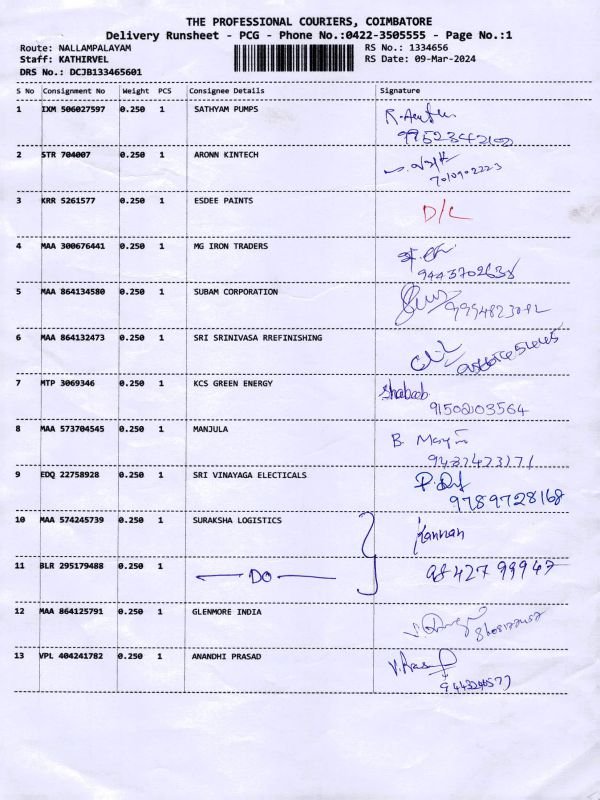 THE PROFESSIONAL COURIERS, COIMBATORE
Delivery Runsheet - PCG - Phone No.:0422-3505555 - Page No.:1
Route: NALLAMPALAYAM RS No.: 1334656
Staff: KATHIRVEL RS Date: 09-Mar-2024
DRS No.: DCJB133465601
S No Consignment No Weight PCS Consignee Details Signature
1 IXM 506027597 0.250 1 SATHYAM PUMPS
2 STR 704007 0.250 1 ARONN KINTECH
7010902223
3 KRR 5261577 0.250 1 ESDEE PAINTS D/L
4 MAA 300676441 0.250 1 MG IRON TRADERS
9443702638
5 MAA 864134580 0.250 1 SUBAM CORPORATION
6 MAA 864132473 0.250 1 SRI SRINIVASA RREFINISHING
7 MTP 3069346 0.250 1 KCS GREEN ENERGY Shabaab
9150203564
8 MAA 573704545 0.250 1 MANJULA
9 EDQ 22758928 0.250 1 SRI VINAYAGA ELECTICALS
9789728168
10 MAA 574245739 0.250 1 SURAKSHA LOGISTICS Kannan
11 BLR 295179488 0.250 1 DO 98427 99947
12 MAA 864125791 0.250 1 GLENMORE INDIA
13 VPL 404241782 0.250 1 ANANDHI PRASAD